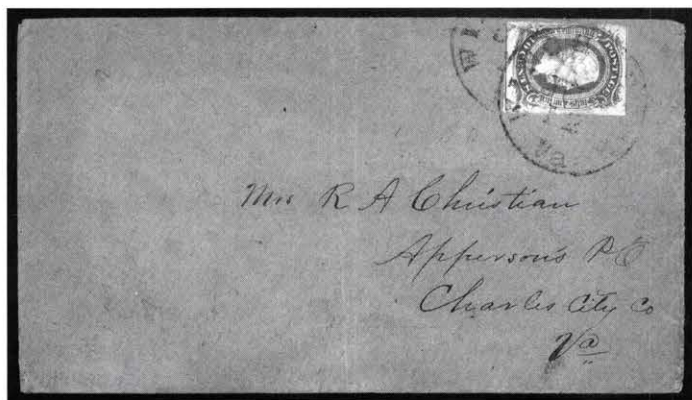 POSTAGE
Mrs R A Christian
Apperson's P.O
Charles City Co
Va